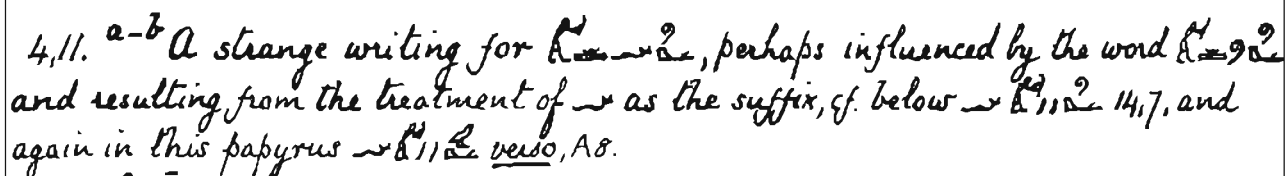 4,11. a–b A strange writing for , perhaps influenced by the word
and resulting from the treatment of as the suffix, cf. below 14,7, and
again in this papyrus verso, A8.